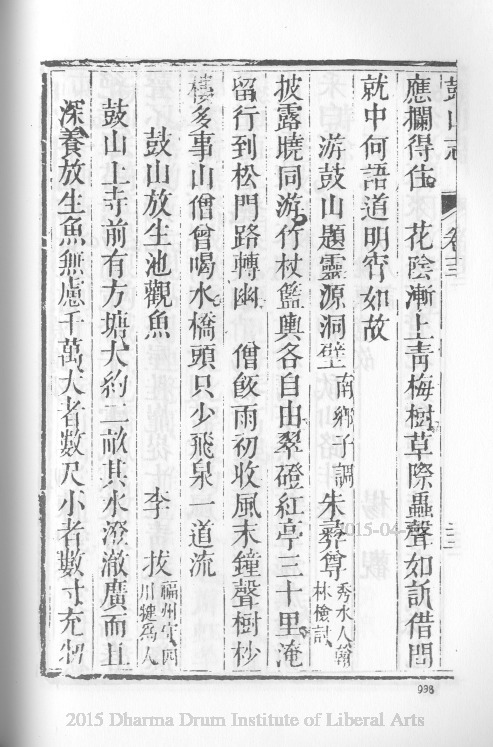 鼓山志 卷十三
應欄得住 花陰漸上靑梅樹草際蟲聲如訴借問
就中何語道明宵如故
游鼓山題靈源洞壁 南鄉子調 朱彝尊 秀水人翰林檢討
披露曉同游竹杖籃輿各自由翠磴紅亭三十里淹
留行到松門路轉幽 僧飯雨初收風末鐘聲樹杪
樓多事山僧曾喝水橋頭只少飛泉一道流
鼓山放生池觀魚 李拔 福州守四川犍爲人
鼓山上寺前有方塘大約一畝其水澄澈廣而且
深養放生魚無慮千萬大者數尺小者數寸充牣
998
2015 Dharma Drum Institute of Liberal Arts